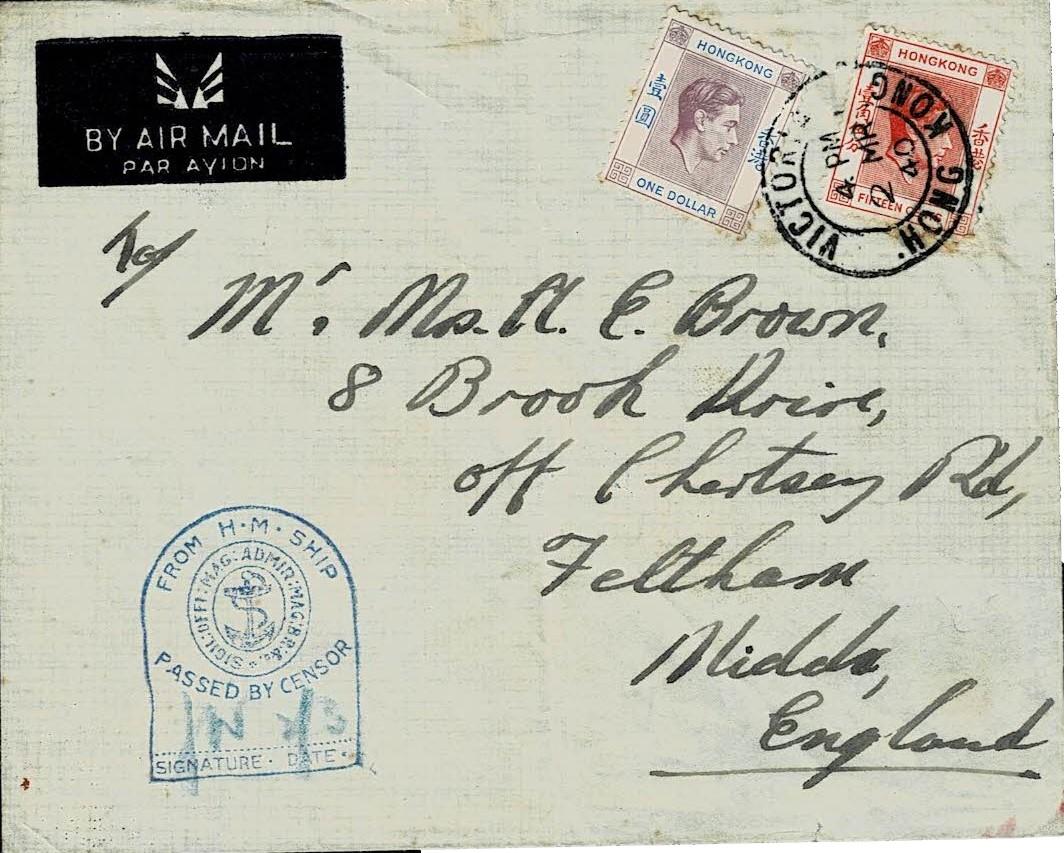 BY AIR MAIL
PAR AVION
HONGKONG
壹圓
ONE DOLLAR
HONGKONG
香港
FIFTEEN C
VICTORIA
HONG KONG
4 PM
2 MR
40
To/
Mr & Mrs. A. E. Brown,
8 Brook Drive,
off Chertsey Rd,
Feltham
Middx,
England
FROM H·M·SHIP
SIGIL:OFFI:MAG:ADMIR:MAG:BR:&c
PASSED BY CENSOR
SIGNATURE · DATE ·